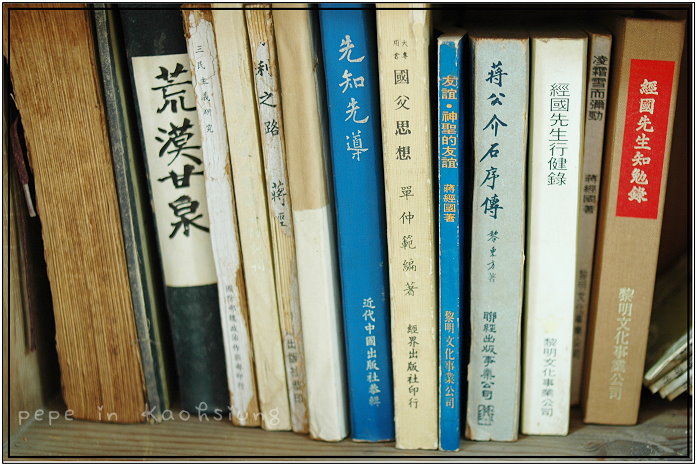 荒漠甘泉
三民主義研究
國防部總政治作戰部印行
利之路
蔣經
出版社恭印
先知先導
近代中國出版社恭輯
大專用書
國父思想
單仲範編著
經界出版社印行
友誼·神聖的友誼
蔣經國著
黎明文化事業公司
蔣公介石序傳
黎東方著
聯經出版事業公司
經國先生行健錄
黎明文化事業公司
凌霜雪而彌勁
蔣經國著
黎明文化事業公司
經國先生知勉錄
黎明文化事業公司
pepe in Kaohsiung